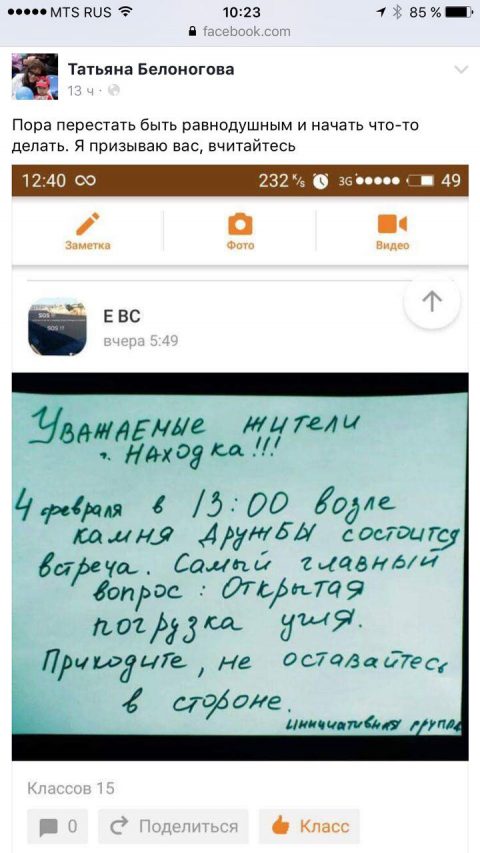 MTS RUS 10:23 85 %
facebook.com
Татьяна Белоногова
13 ч ·
Пора перестать быть равнодушным и начать что-то
делать. Я призываю вас, вчитайтесь
12:40 232 K/s 3G 49
Заметка Фото Видео
SOS !!!
SOS !!!
Е ВС
вчера 5:49
Уважаемые жители
г. Находка!!!
4 февраля в 13:00 возле
камня Дружбы состоится
встреча. Самый главный
вопрос: Открытая
погрузка угля.
Приходите, не оставайтесь
в стороне.
инициативная группа
Классов 15
0 Поделиться Класс